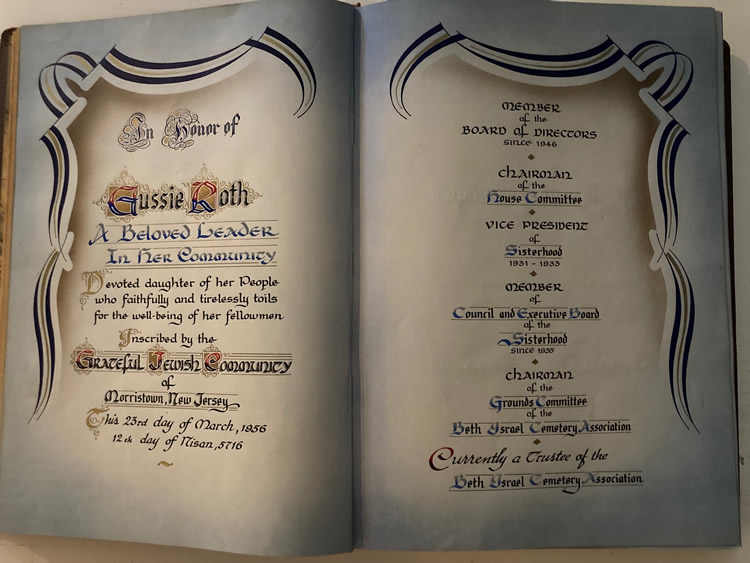 In Honor of
Gussie Roth
A Beloved Leader
In Her Community
Devoted daughter of her People
who faithfully and tirelessly toils
for the well-being of her fellowmen
Inscribed by the
Grateful Jewish Community
of
Morristown, New Jersey
This 23rd day of March, 1956
12th day of Nisan, 5716
MEMBER
of the
BOARD of DIRECTORS
since 1946
CHAIRMAN
of the
House Committee
VICE PRESIDENT
of
Sisterhood
1931 - 1933
MEMBER
of
Council and Executive Board
of the
Sisterhood
since 1935
CHAIRMAN
of the
Grounds Committee
of the
Beth Israel Cemetery Association
Currently a Trustee of the
Beth Israel Cemetery Association